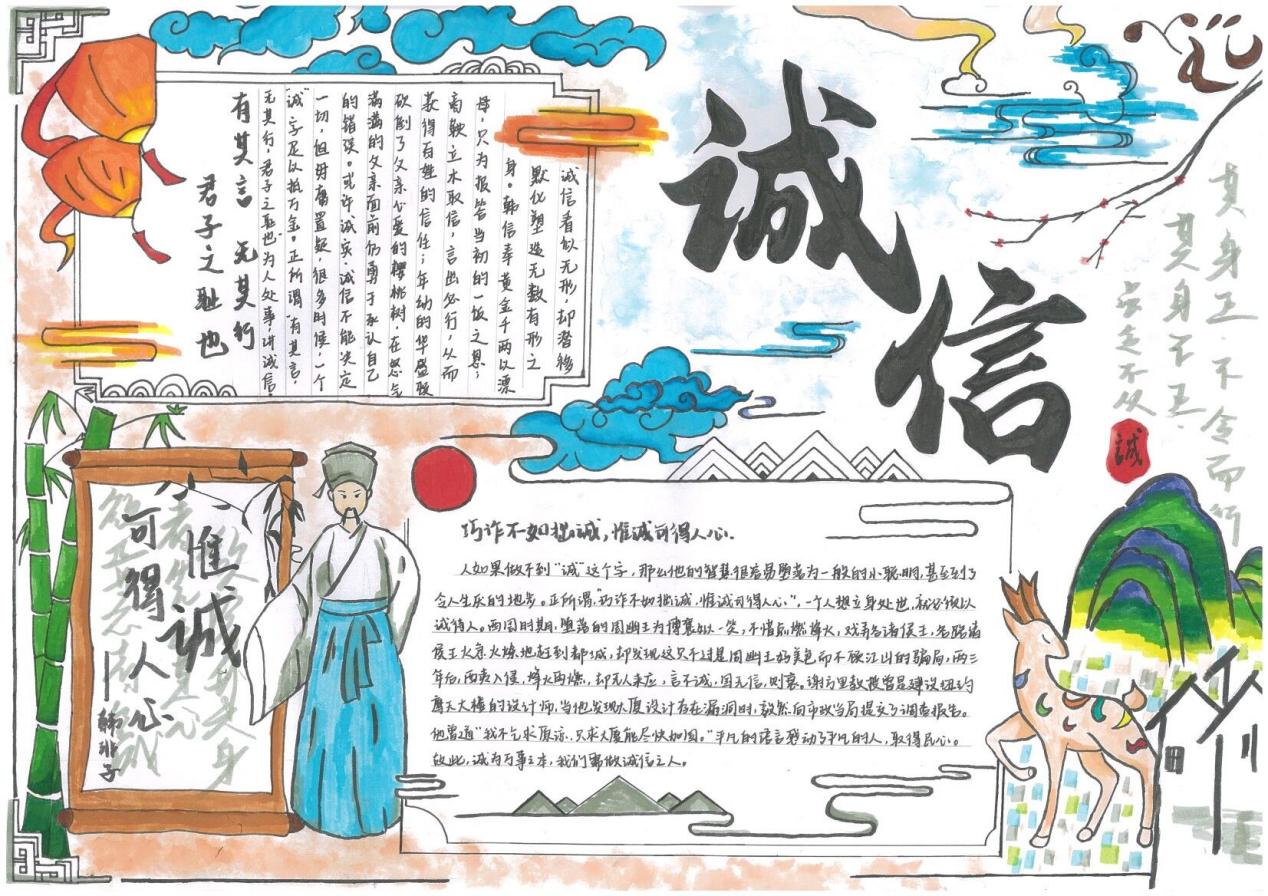 诚信
其身正，不令而行
其身不正，
虽令不从
誠
诚信看似无形，却潜移
默化塑造无数有形之
身。韩信奉黄金千两以漂
母，只为报答当初的一饭之恩；
商鞅立木取信，言出必行，从而
获得百姓的信任；年幼的华盛顿
砍倒了父亲心爱的樱桃树，在怒气
满满的父亲面前仍勇于承认自己
的错误。或许诚实、诚信不能决定
一切，但毋庸置疑，很多时候，一个
“诚”字足以抵万金。正所谓“有其言，
无其行，君子之耻也”为人处事，讲诚信！
有其言 无其行
君子之耻也
惟诚
可得人心
——韩非子
巧诈不如拙诚，惟诚可得人心.
人如果做不到“诚”这个字，那么他的智慧很容易堕落为一般的小聪明，甚至到了
令人生厌的地步。正所谓，“巧诈不如拙诚，惟诚可得人心”，一个人想立身处世，就必须以
诚待人。两周时期，堕落的周幽王为博褒姒一笑，不惜点燃烽火，戏弄各诸侯王，各路诸
侯王火急火燎地赶到都城，却发现这只不过是周幽王好美色而不顾江山的骗局，两三
年后，西夷入侵，烽火再燃，却无人来应，言不诚，国无信，则衰。谢方里教授曾是建设纽约
摩天大楼的设计师，当他发现大厦设计存在漏洞时，毅然向市政当局提交了调查报告。
他曾道“我不乞求原谅，只求大厦能尽快加固。”平凡的语言感动了平凡的人，取得民心。
故此，诚为万事之本，我们需做诚信之人。